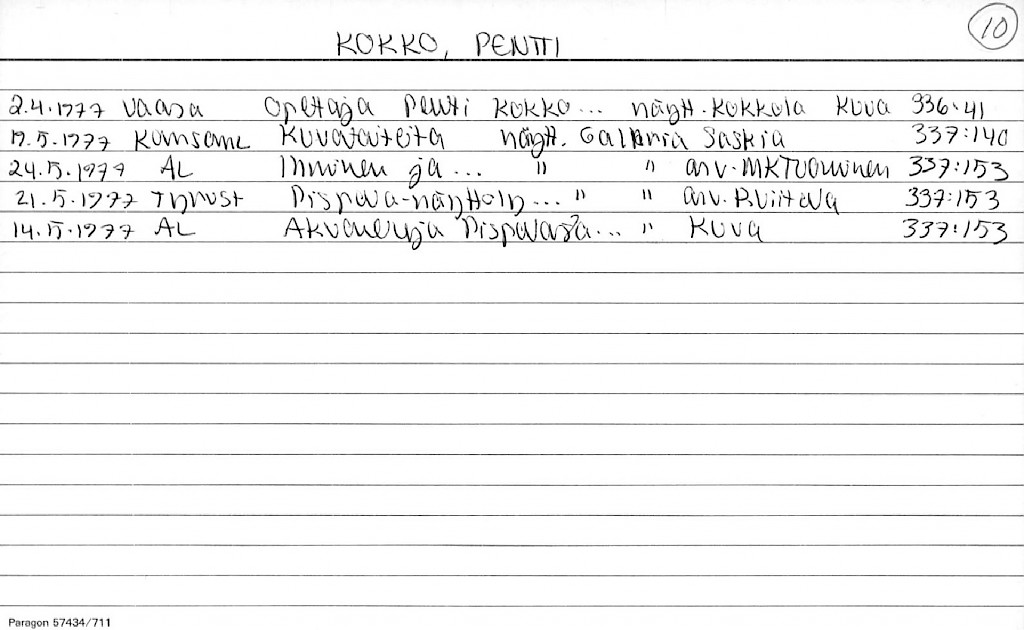 10
KOKKO, PENTTI
2.4.1977 Vaasa Opettaja Pentti Kokko... näytt. Kokkola Kuva 336:41
19.5.1977 Kansanl Kuvataiteita näytt. Galleria Saskia 337:140
24.5.1977 AL Ihminen ja... " " arv. MKTuominen 337:153
21.5.1977 Dispova-näyttely... " " arv. 337:153
14.5.1977 AL Akvarelleja " Kuva 337:153
Paragon 57434/711